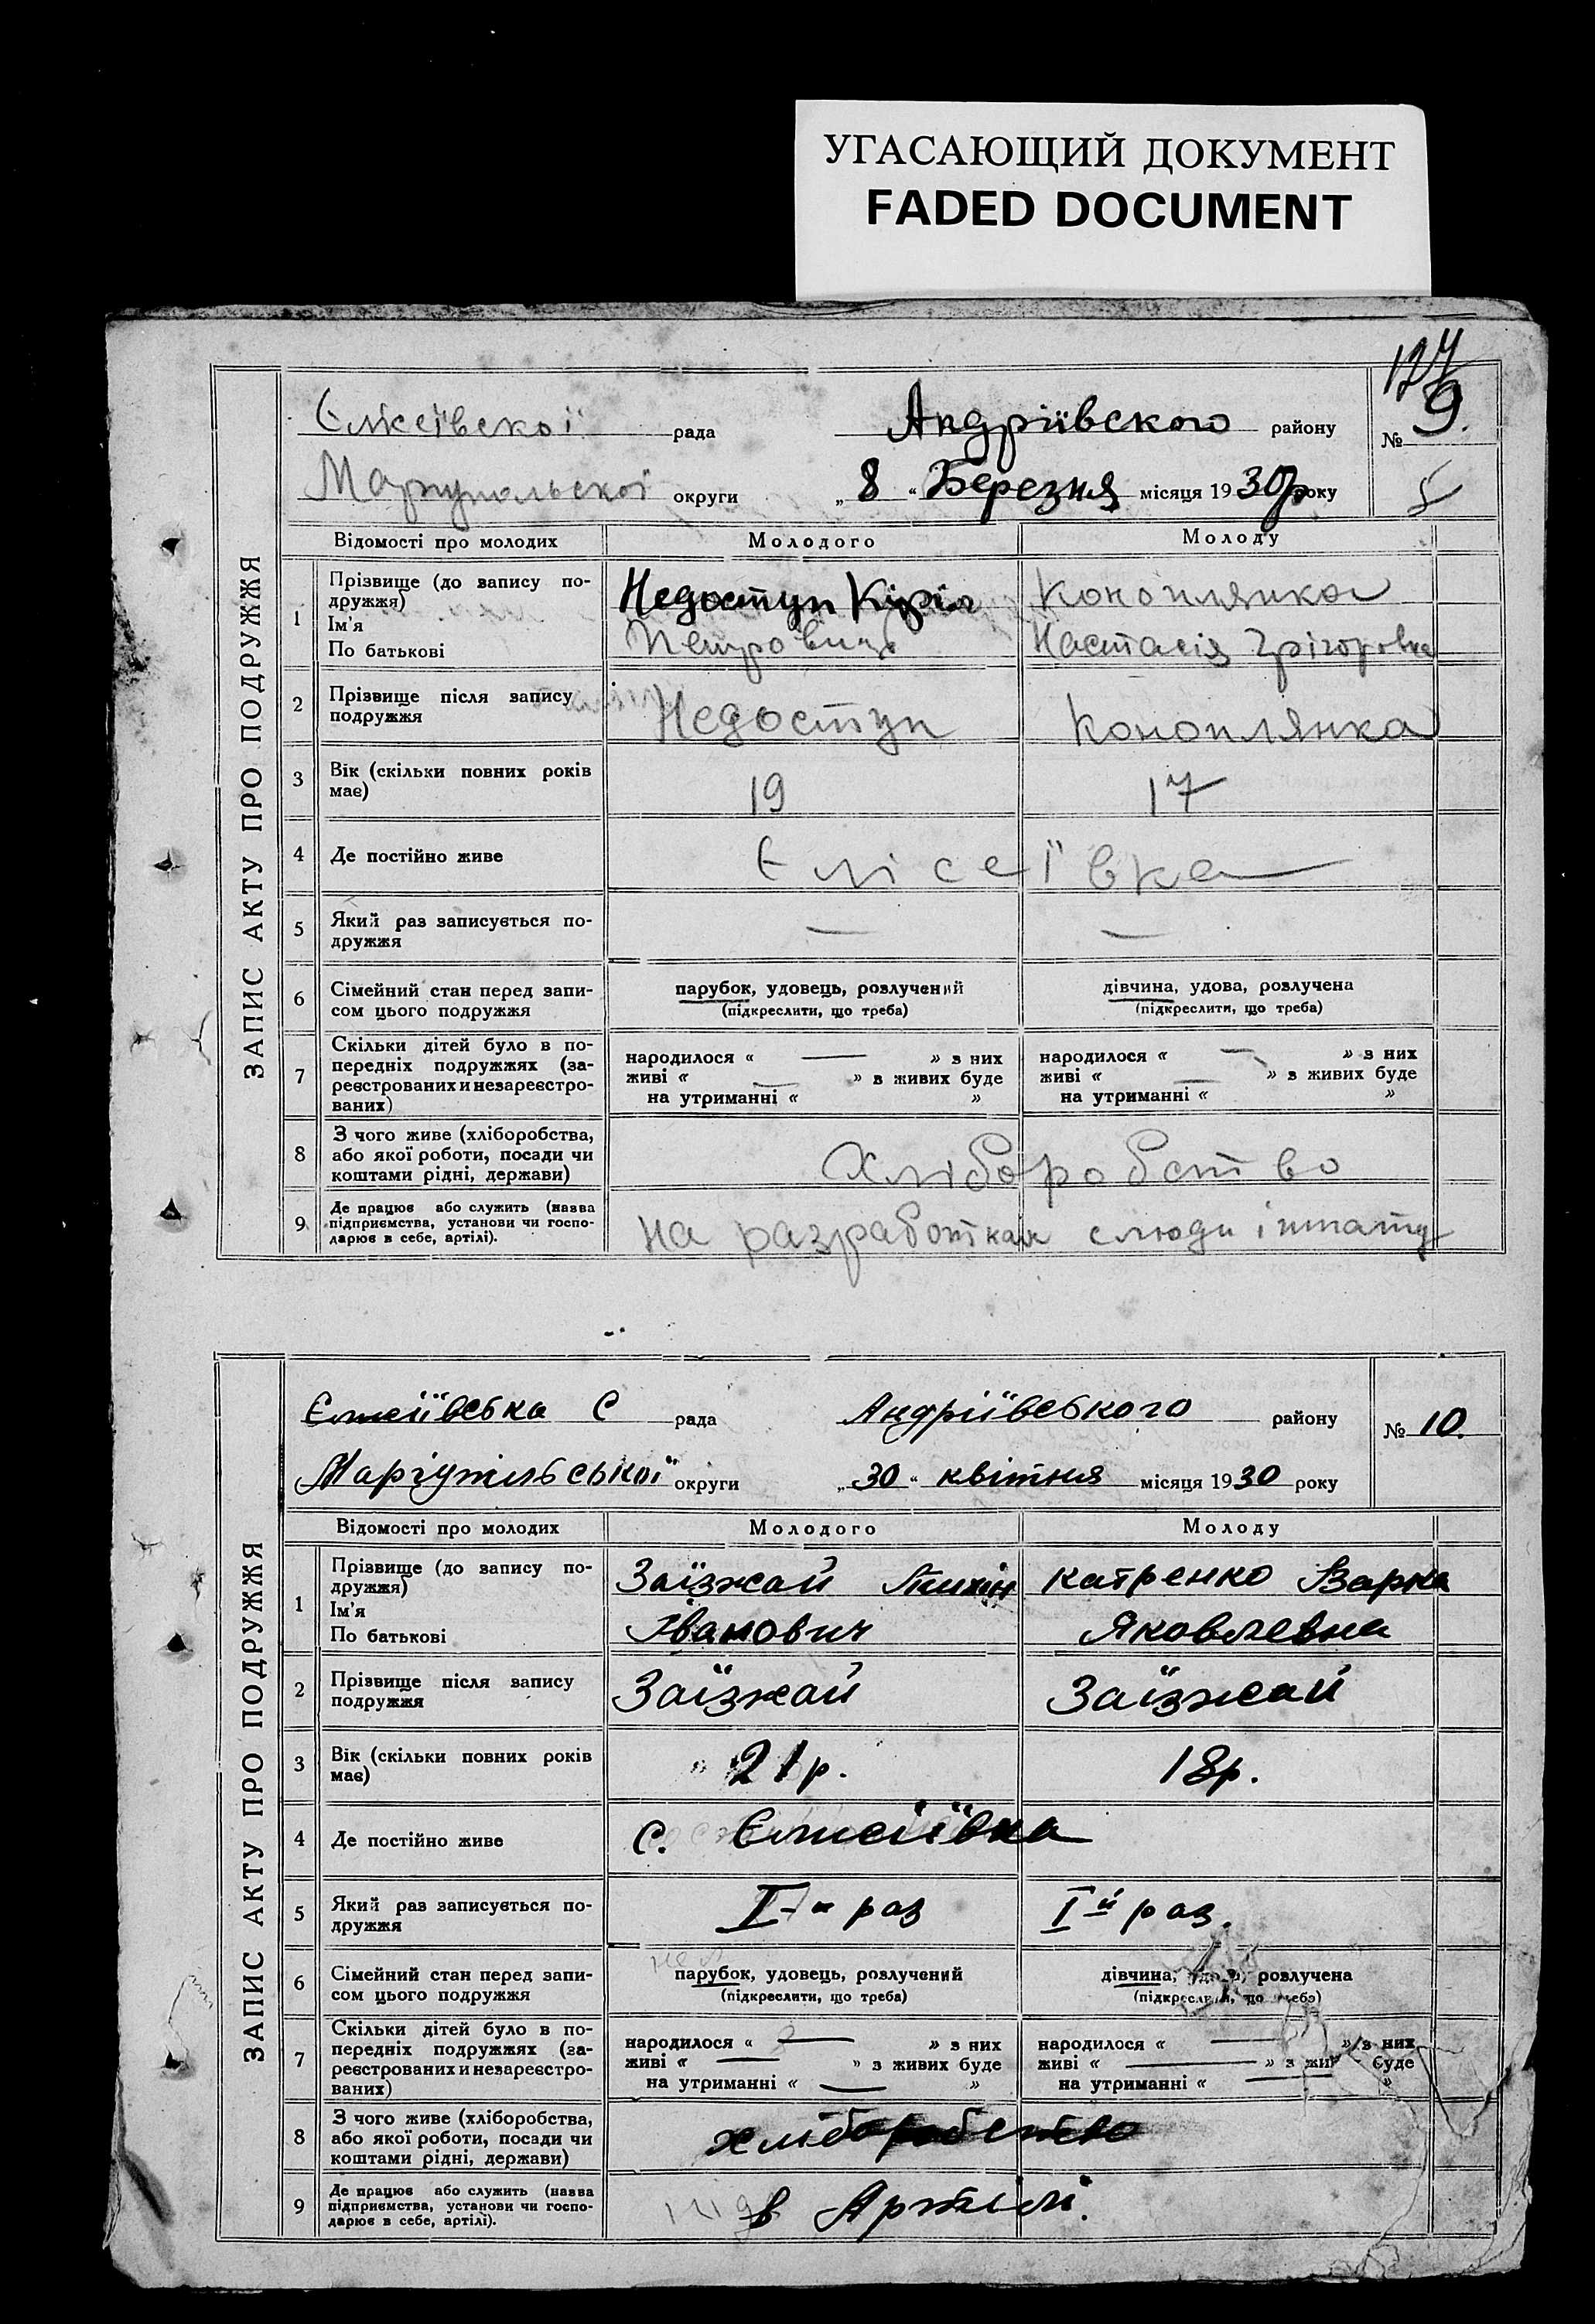 УГАСАЮЩИЙ ДОКУМЕНТ
FADED DOCUMENT
124
ЗАПИС АКТУ ПРО ПОДРУЖЖЯ
Єлісеївскої рада Андріївского району № 9.
Маріупольскої округи „ 8 “ Березня місяця 1930р року
Відомості про молодих Молодого Молоду
1 Прізвище (до запису по-
дружжя)
Ім'я
По батькові
Недоступ Кіріл
Петровичь
Коноплянка
Настасія Грігоровна
2 Прізвище після запису
подружжя
Недоступ Коноплянка
3 Вік (скільки повних років
має)
19 17
4 Де постійно живе Єлісеївка
5 Який раз записується по-
дружжя
— —
6 Сімейний стан перед запи-
сом цього подружжя
парубок, удовець, розлучений
(підкреслити, що треба)
дівчина, удова, розлучена
(підкреслити, що треба)
7 Скільки дітей було в по-
передніх подружжях (за-
реєстрованих и незареєстро-
ваних)
народилося « — » з них
живі « — » з живих буде
на утриманні « »
народилося « — » з них
живі « — » з живих буде
на утриманні « »
8 З чого живе (хліборобства,
або якої роботи, посади чи
коштами рідні, держави)
Хліборобство
9 Де працює або служить (назва
підприємства, установи чи госпо-
дарює в себе, артілі).
на разработках слюди
ЗАПИС АКТУ ПРО ПОДРУЖЖЯ
Єлисіївська С рада Андріївського району № 10.
Маріупільської округи „ 30 “ квітня місяця 1930 року
Відомості про молодих Молодого Молоду
1 Прізвище (до запису по-
дружжя)
Ім'я
По батькові
Заїзжай Тихін
Іванович
Катренко Варка
Яковлевна
2 Прізвище після запису
подружжя
Заїзжай Заїзжай
3 Вік (скільки повних років
має)
21 р. 18 р.
4 Де постійно живе с. Єлисіївка
5 Який раз записується по-
дружжя
I-й раз I й раз.
6 Сімейний стан перед запи-
сом цього подружжя
парубок, удовець, розлучений
(підкреслити, що треба)
дівчина, удова, розлучена
(підкреслити, що треба)
7 Скільки дітей було в по-
передніх подружжях (за-
реєстрованих и незареєстро-
ваних)
народилося « — » з них
живі « — » з живих буде
на утриманні « — »
народилося « — » з них
живі « — » з живих буде
на утриманні « — »
8 З чого живе (хліборобства,
або якої роботи, посади чи
коштами рідні, держави)
хліборобство
9 Де працює або служить (назва
підприємства, установи чи госпо-
дарює в себе, артілі).
в Артілі.